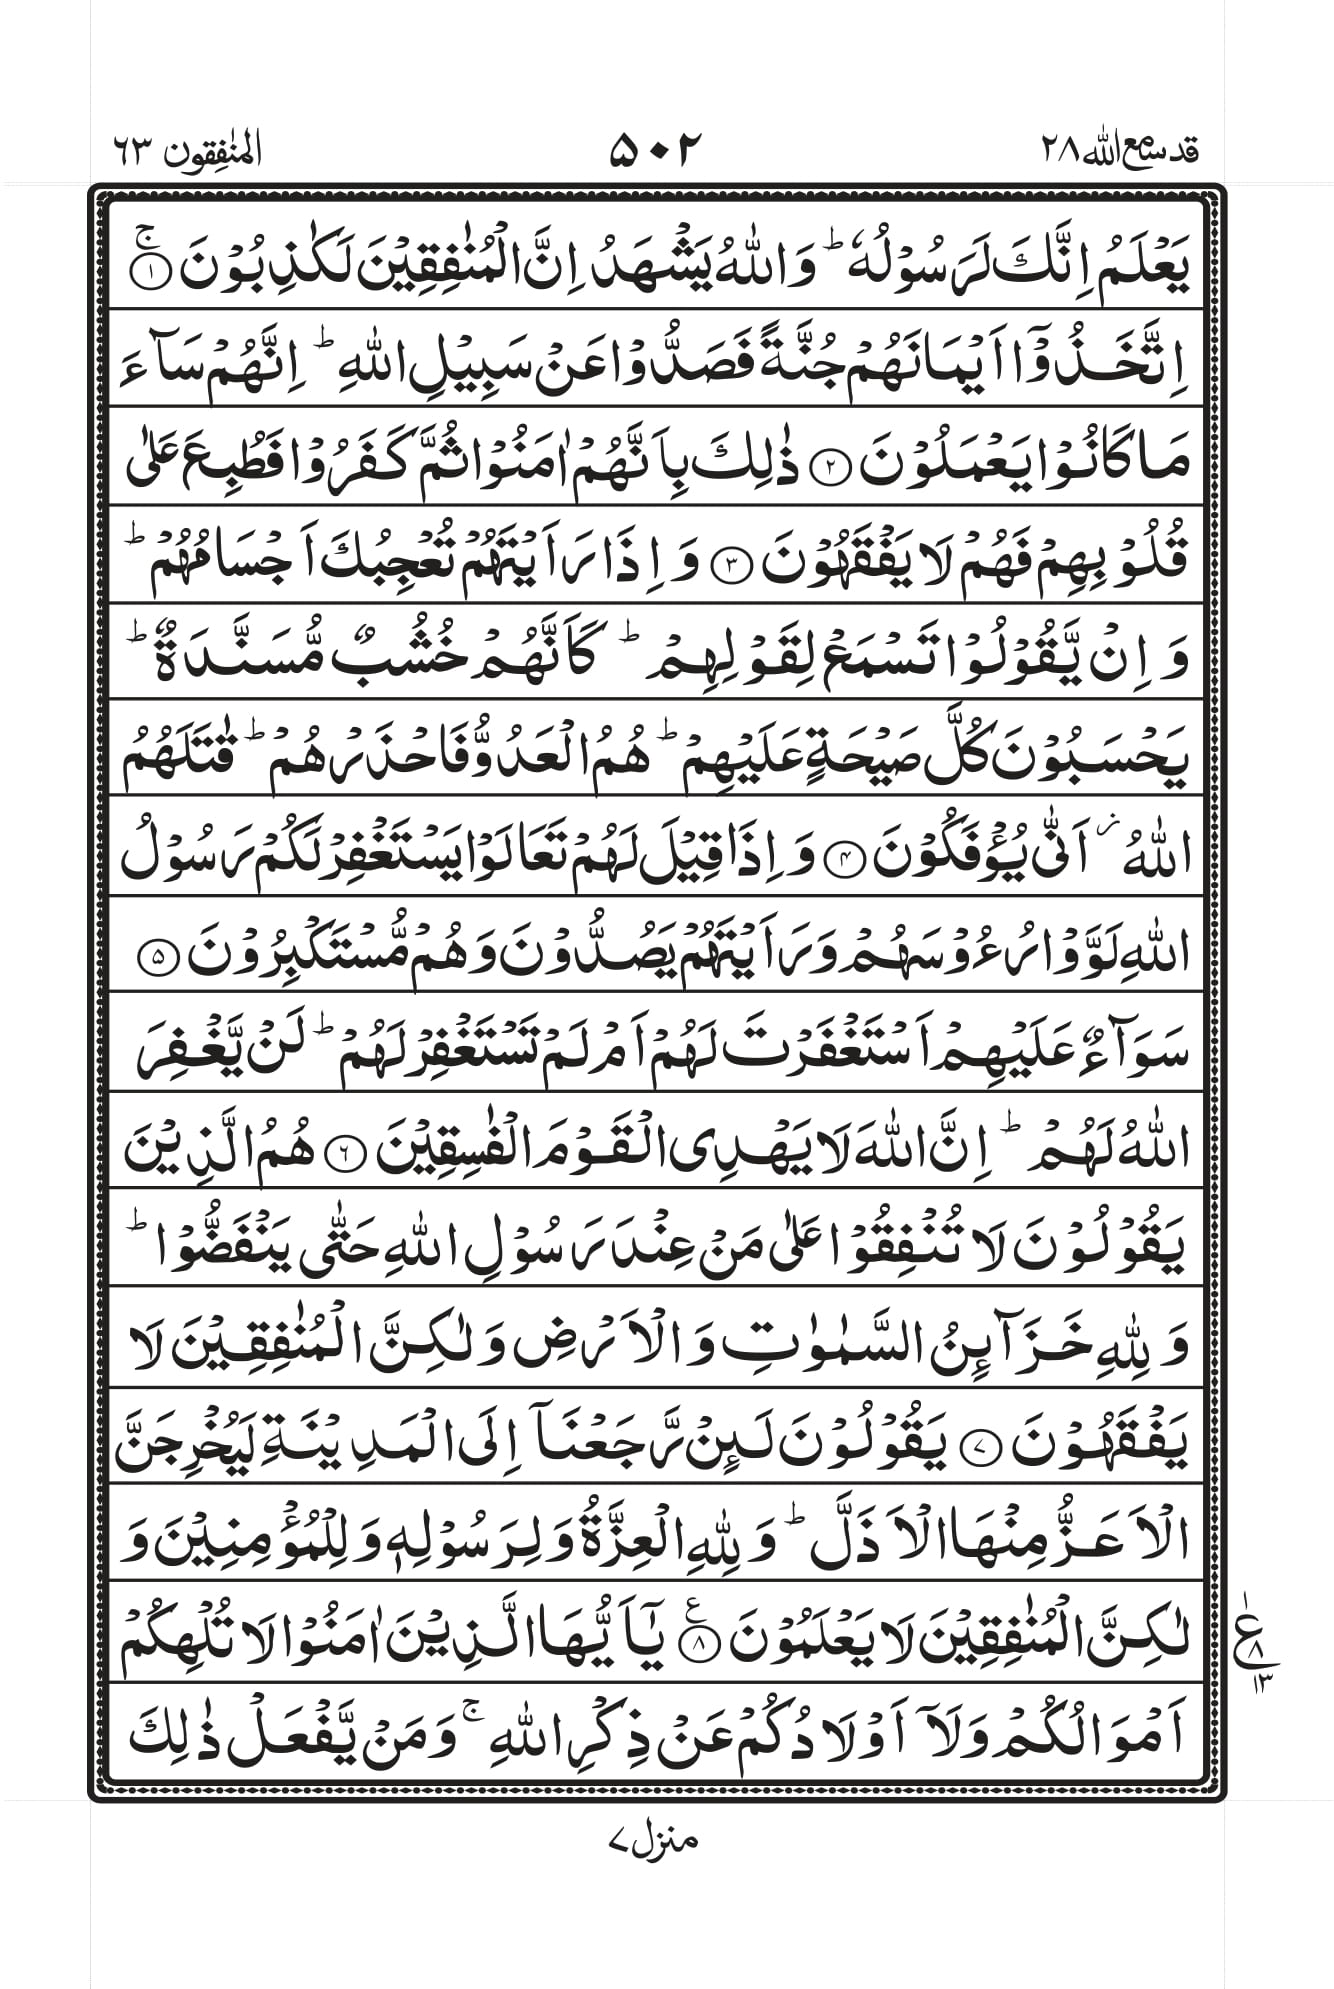 قد سمع الله ۲۸
۵۰۲
المنٰفِقون ۶۳
یَعۡلَمُ اِنَّكَ لَرَسُوۡلُهٗ ؕ وَاللّٰهُ یَشۡهَدُ اِنَّ الۡمُنٰفِقِیۡنَ لَكٰذِبُوۡنَ ۚ‏ ﴿۱﴾
اِتَّخَذُوۡۤا اَیۡمَانَهُمۡ جُنَّةً فَصَدُّوۡا عَنۡ سَبِیۡلِ اللّٰهِ ؕ اِنَّهُمۡ سَآءَ
مَا كَانُوۡا یَعۡمَلُوۡنَ ﴿۲﴾ ذٰلِكَ بِاَنَّهُمۡ اٰمَنُوۡا ثُمَّ كَفَرُوۡا فَطُبِعَ عَلٰی
قُلُوۡبِهِمۡ فَهُمۡ لَا یَفۡقَهُوۡنَ ﴿۳﴾ وَ اِذَا رَاَیۡتَهُمۡ تُعۡجِبُكَ اَجۡسَامُهُمۡ ؕ
وَ اِنۡ یَّقُوۡلُوۡا تَسۡمَعۡ لِقَوۡلِهِمۡ ؕ كَاَنَّهُمۡ خُشُبٌ مُّسَنَّدَةٌ ؕ
یَحۡسَبُوۡنَ كُلَّ صَیۡحَةٍ عَلَیۡهِمۡ ؕ هُمُ الۡعَدُوُّ فَاحۡذَرۡهُمۡ ؕ قٰتَلَهُمُ
اللّٰهُ ز اَنّٰی یُؤۡفَكُوۡنَ ﴿۴﴾ وَ اِذَا قِیۡلَ لَهُمۡ تَعَالَوۡا یَسۡتَغۡفِرۡ لَكُمۡ رَسُوۡلُ
اللّٰهِ لَوَّوۡا رُءُوۡسَهُمۡ وَ رَاَیۡتَهُمۡ یَصُدُّوۡنَ وَهُمۡ مُّسۡتَكۡبِرُوۡنَ ﴿۵﴾
سَوَآءٌ عَلَیۡهِمۡ اَسۡتَغۡفَرۡتَ لَهُمۡ اَمۡ لَمۡ تَسۡتَغۡفِرۡ لَهُمۡ ؕ لَنۡ یَّغۡفِرَ
اللّٰهُ لَهُمۡ ؕ اِنَّ اللّٰهَ لَا یَهۡدِی الۡقَوۡمَ الۡفٰسِقِیۡنَ ﴿۶﴾ هُمُ الَّذِیۡنَ
یَقُوۡلُوۡنَ لَا تُنۡفِقُوۡا عَلٰی مَنۡ عِنۡدَ رَسُوۡلِ اللّٰهِ حَتّٰی یَنۡفَضُّوۡا ؕ
وَ لِلّٰهِ خَزَآئِنُ السَّمٰوٰتِ وَ الۡاَرۡضِ وَ لٰكِنَّ الۡمُنٰفِقِیۡنَ لَا
یَفۡقَهُوۡنَ ﴿۷﴾ یَقُوۡلُوۡنَ لَئِنۡ رَّجَعۡنَاۤ اِلَی الۡمَدِیۡنَةِ لَیُخۡرِجَنَّ
الۡاَعَزُّ مِنۡهَا الۡاَذَلَّ ؕ وَ لِلّٰهِ الۡعِزَّةُ وَ لِرَسُوۡلِهٖ وَ لِلۡمُؤۡمِنِیۡنَ وَ
لٰكِنَّ الۡمُنٰفِقِیۡنَ لَا یَعۡلَمُوۡنَ ﴿۸﴾ ع یٰۤاَیُّهَا الَّذِیۡنَ اٰمَنُوۡا لَا تُلۡهِكُمۡ
اَمۡوَالُكُمۡ وَلَاۤ اَوۡلَادُكُمۡ عَنۡ ذِكۡرِ اللّٰهِ ۚ وَمَنۡ یَّفۡعَلۡ ذٰلِكَ
ع ۸ ۱۳
منزل ۷